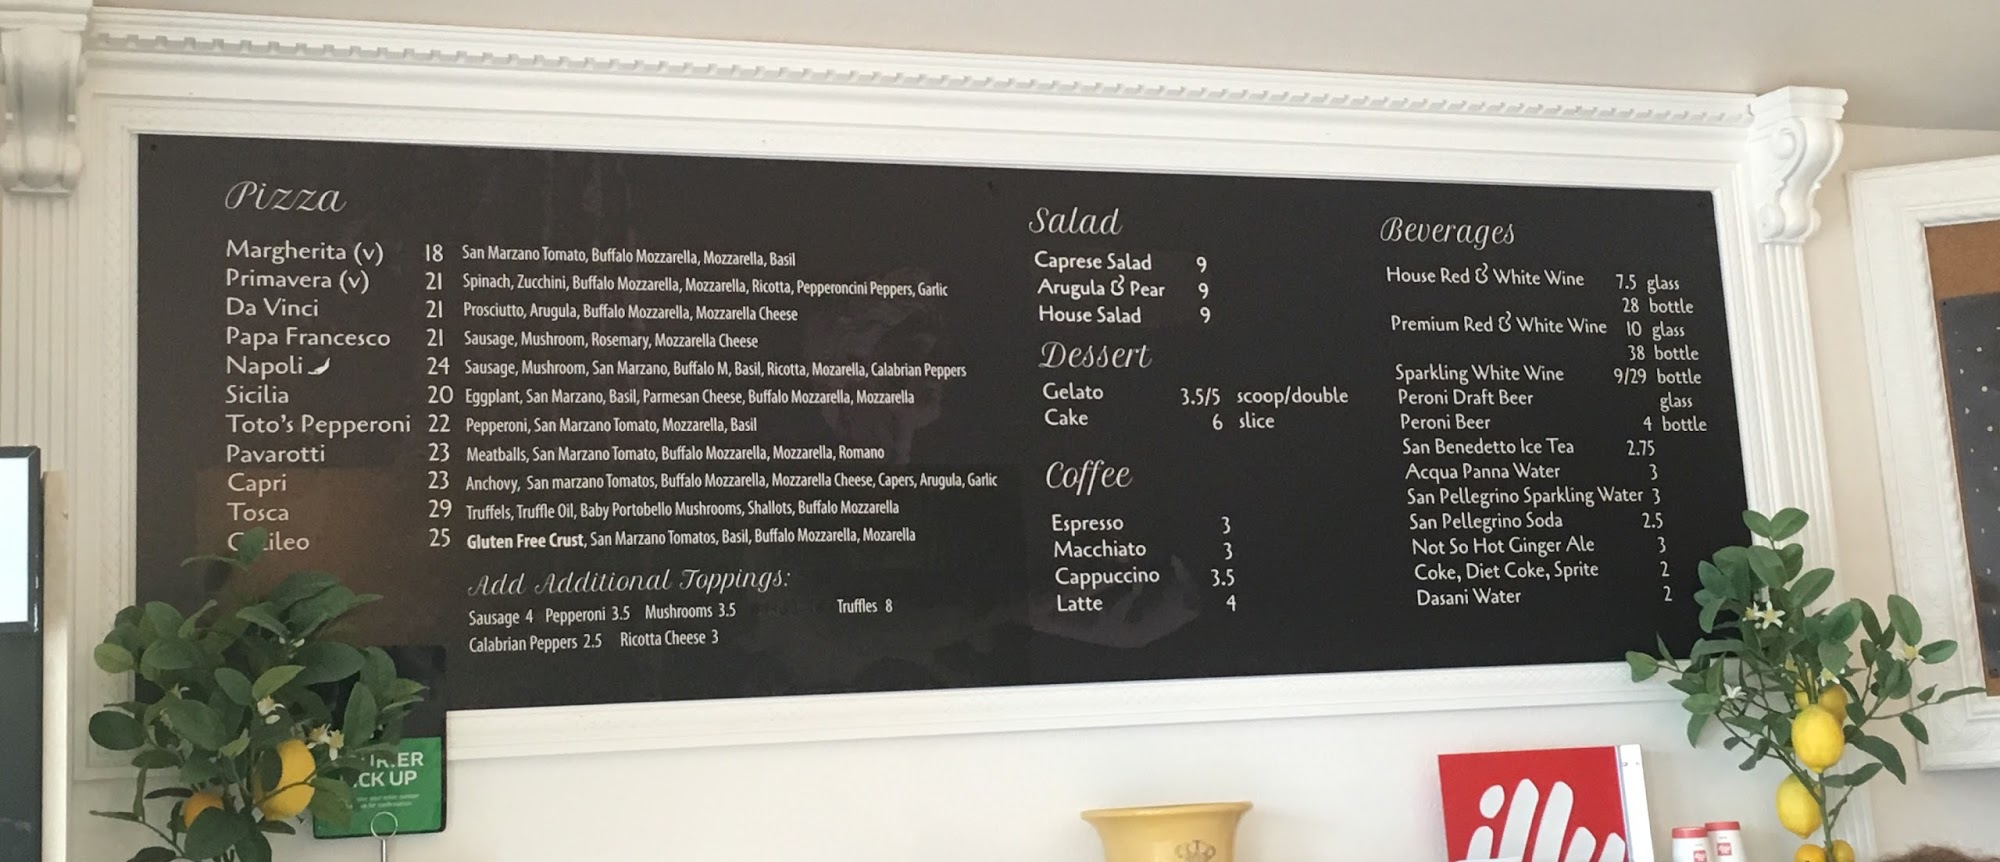 Pizza
Margherita (v) 18 San Marzano Tomato, Buffalo Mozzarella, Mozzarella, Basil
Primavera (v) 21 Spinach, Zucchini, Buffalo Mozzarella, Mozzarella, Ricotta, Pepperoncini Peppers, Garlic
Da Vinci 21 Prosciutto, Arugula, Buffalo Mozzarella, Mozzarella Cheese
Papa Francesco 21 Sausage, Mushroom, Rosemary, Mozzarella Cheese
Napoli 24 Sausage, Mushroom, San Marzano, Buffalo M, Basil, Ricotta, Mozarella, Calabrian Peppers
Sicilia 20 Eggplant, San Marzano, Basil, Parmesan Cheese, Buffalo Mozzarella, Mozzarella
Toto's Pepperoni 22 Pepperoni, San Marzano Tomato, Mozzarella, Basil
Pavarotti 23 Meatballs, San Marzano Tomato, Buffalo Mozzarella, Mozzarella, Romano
Capri 23 Anchovy, San marzano Tomatos, Buffalo Mozzarella, Mozzarella Cheese, Capers, Arugula, Garlic
Tosca 29 Truffels, Truffle Oil, Baby Portobello Mushrooms, Shallots, Buffalo Mozzarella
25 Gluten Free Crust, San Marzano Tomatos, Basil, Buffalo Mozzarella, Mozarella
Add Additional Toppings:
Sausage 4 Pepperoni 3.5 Mushrooms 3.5 Truffles 8
Calabrian Peppers 2.5 Ricotta Cheese 3
Salad
Caprese Salad 9
Arugula & Pear 9
House Salad 9
Dessert
Gelato 3.5/5 scoop/double
Cake 6 slice
Coffee
Espresso 3
Macchiato 3
Cappuccino 3.5
Latte 4
Beverages
House Red & White Wine 7.5 glass
28 bottle
Premium Red & White Wine 10 glass
38 bottle
Sparkling White Wine 9/29 bottle
Peroni Draft Beer glass
Peroni Beer 4 bottle
San Benedetto Ice Tea 2.75
Acqua Panna Water 3
San Pellegrino Sparkling Water 3
San Pellegrino Soda 2.5
Not So Hot Ginger Ale 3
Coke, Diet Coke, Sprite 2
Dasani Water 2
UP
illy